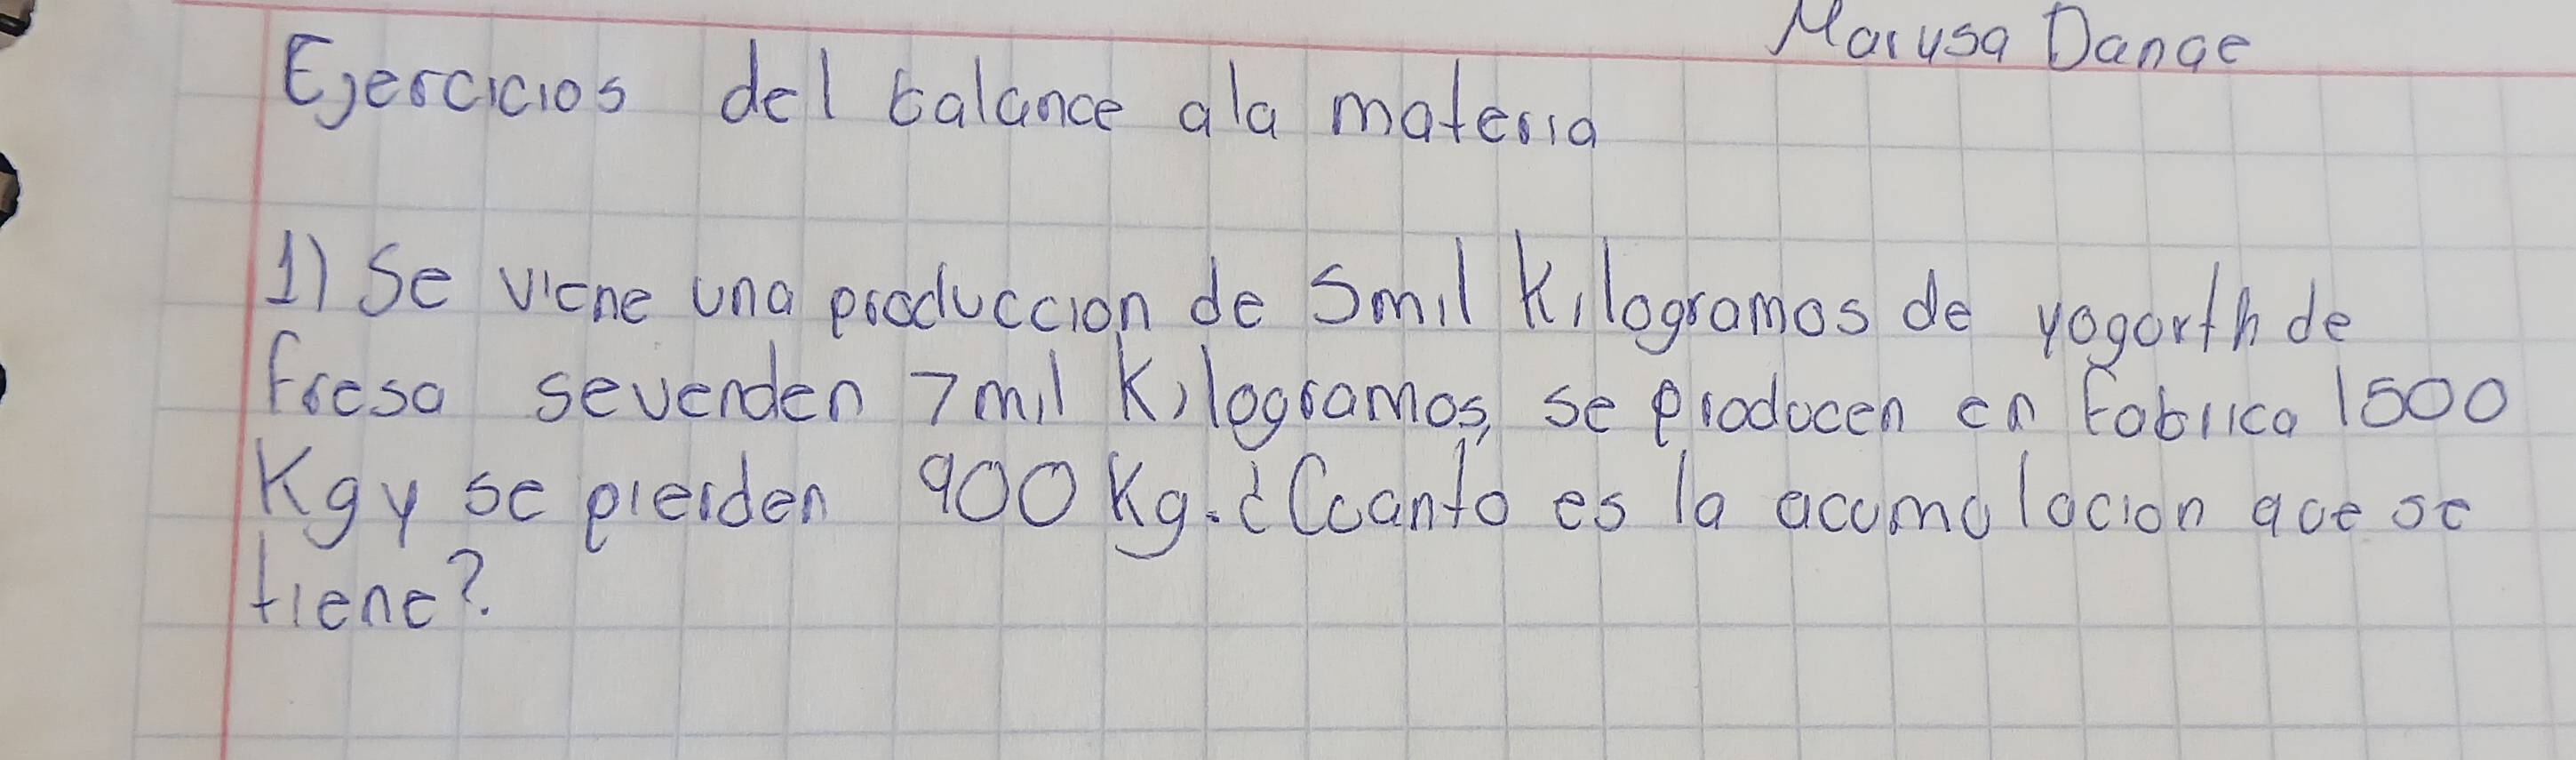 Marusa Dange
Ejercicios del balance ala materia
1) Se viene una produccion de 5mil Kilogramos de yogorth de
fresa sevenden 7mil Kilogramos, se producen en fabrica 1500
Kg y se pierden 900 Kg. ¿Cuanto es la acumulacion que se
tiene?